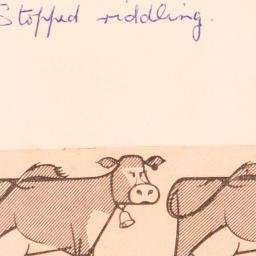 Stopped riddling.